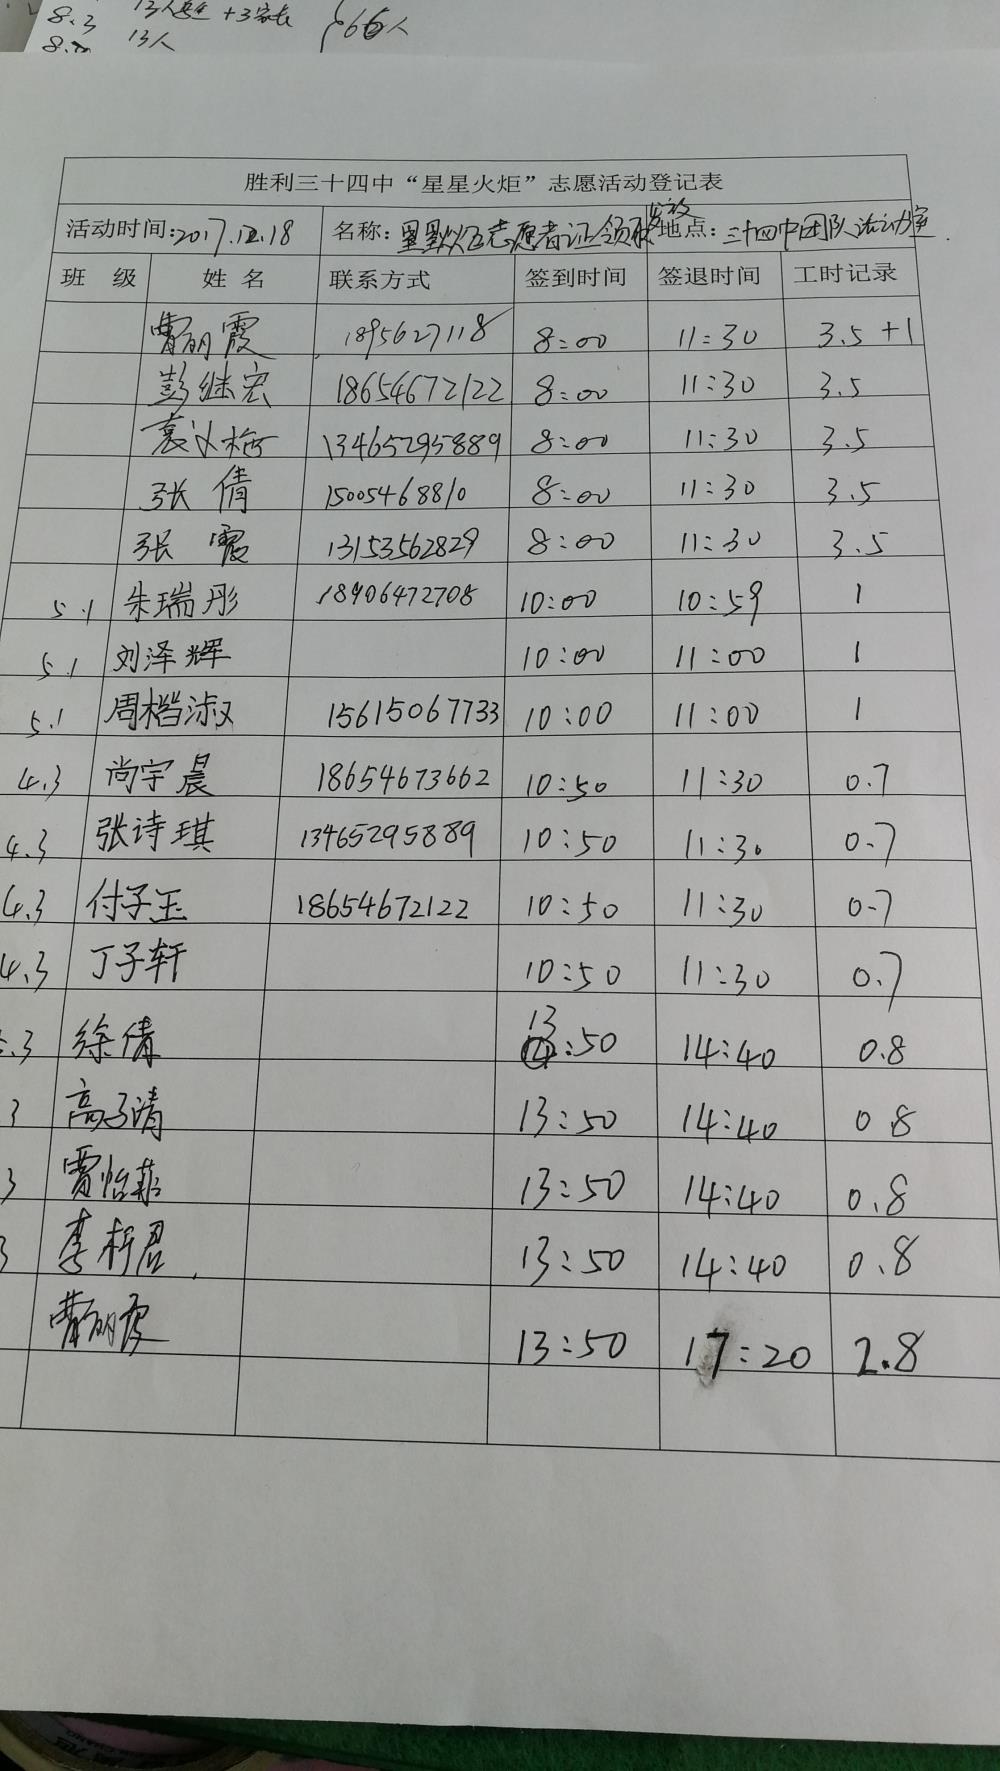 8.3 13人 +3家长 66人
13人
胜利三十四中“星星火炬”志愿活动登记表
活动时间:2017.12.18 名称: 志愿者证领取 发放 地点: 三十四中团队活动室
班 级 姓 名 联系方式 签到时间 签退时间 工时记录
曹丽霞 1895627118 8:00 11:30 3.5+1
彭继宏 18654672122 8:00 11:30 3.5
袁 梅 13465295889 8:00 11:30 3.5
张倩 15005468810 8:00 11:30 3.5
张霞 13153562829 8:00 11:30 3.5
5.1 朱瑞彤 18906472708 10:00 10:59 1
5.1 刘泽辉 10:00 11:00 1
5.1 周楷淑 15615067733 10:00 11:00 1
4.3 尚宇晨 18654673662 10:50 11:30 0.7
4.3 张诗琪 13465295889 10:50 11:30 0.7
4.3 付子玉 18654672122 10:50 11:30 0.7
4.3 丁子轩 10:50 11:30 0.7
.3 徐倩 13:50 14:40 0.8
3 高子清 13:50 14:40 0.8
3 贾怡菲 13:50 14:40 0.8
3 李析君 13:50 14:40 0.8
曹丽霞 13:50 17:20 2.8